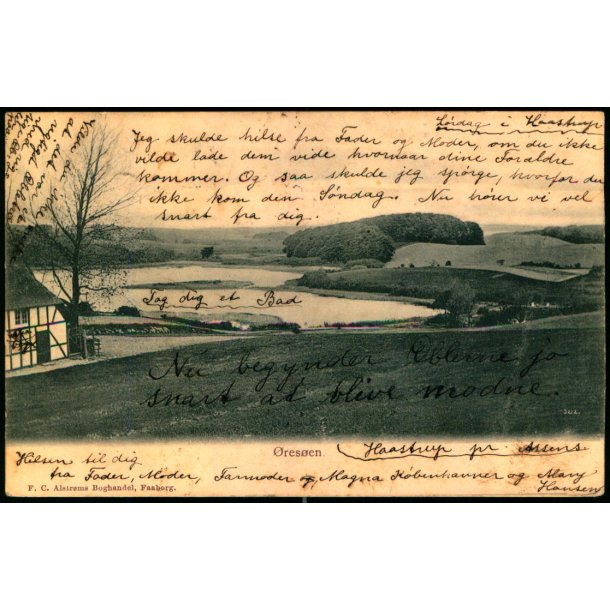 Lørdag i Haastrup
Jeg skulde hilse fra Fader og Moder, om du ikke
vilde lade dem vide hvornaar dine Forældre
kommer. Og saa skulde jeg spörge, hvorfor du
ikke kom den Söndag. Nu hörer vi vel
snart fra dig.
Tag dig et Bad
Nu begynder Æblerne jo
snart at blive modne.
Øresøen.
Haastrup pr. Assens
Hilsen til dig
fra Fader, Moder, Farmoder og, Magna Københavner og Mary
Hansen
F. C. Alstrøms Boghandel, Faaborg.